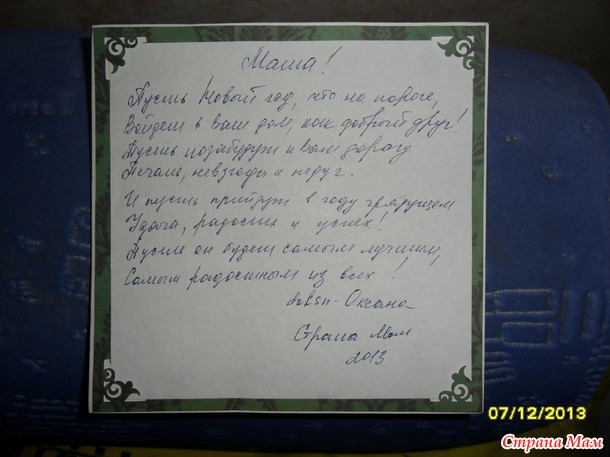 Маша!
Пусть Новый год, что на пороге,
Войдет в Ваш дом, как добрый друг!
Пусть позабудут к вам дорогу
Печаль, невзгоды и недуг.
И пусть придут в году грядущем
Удача, радость и успех!
Пусть он будет самым лучшим,
Самым радостным из всех!
doksn-Оксана
Страна Мам
2013
07/12/2013
Страна Мам